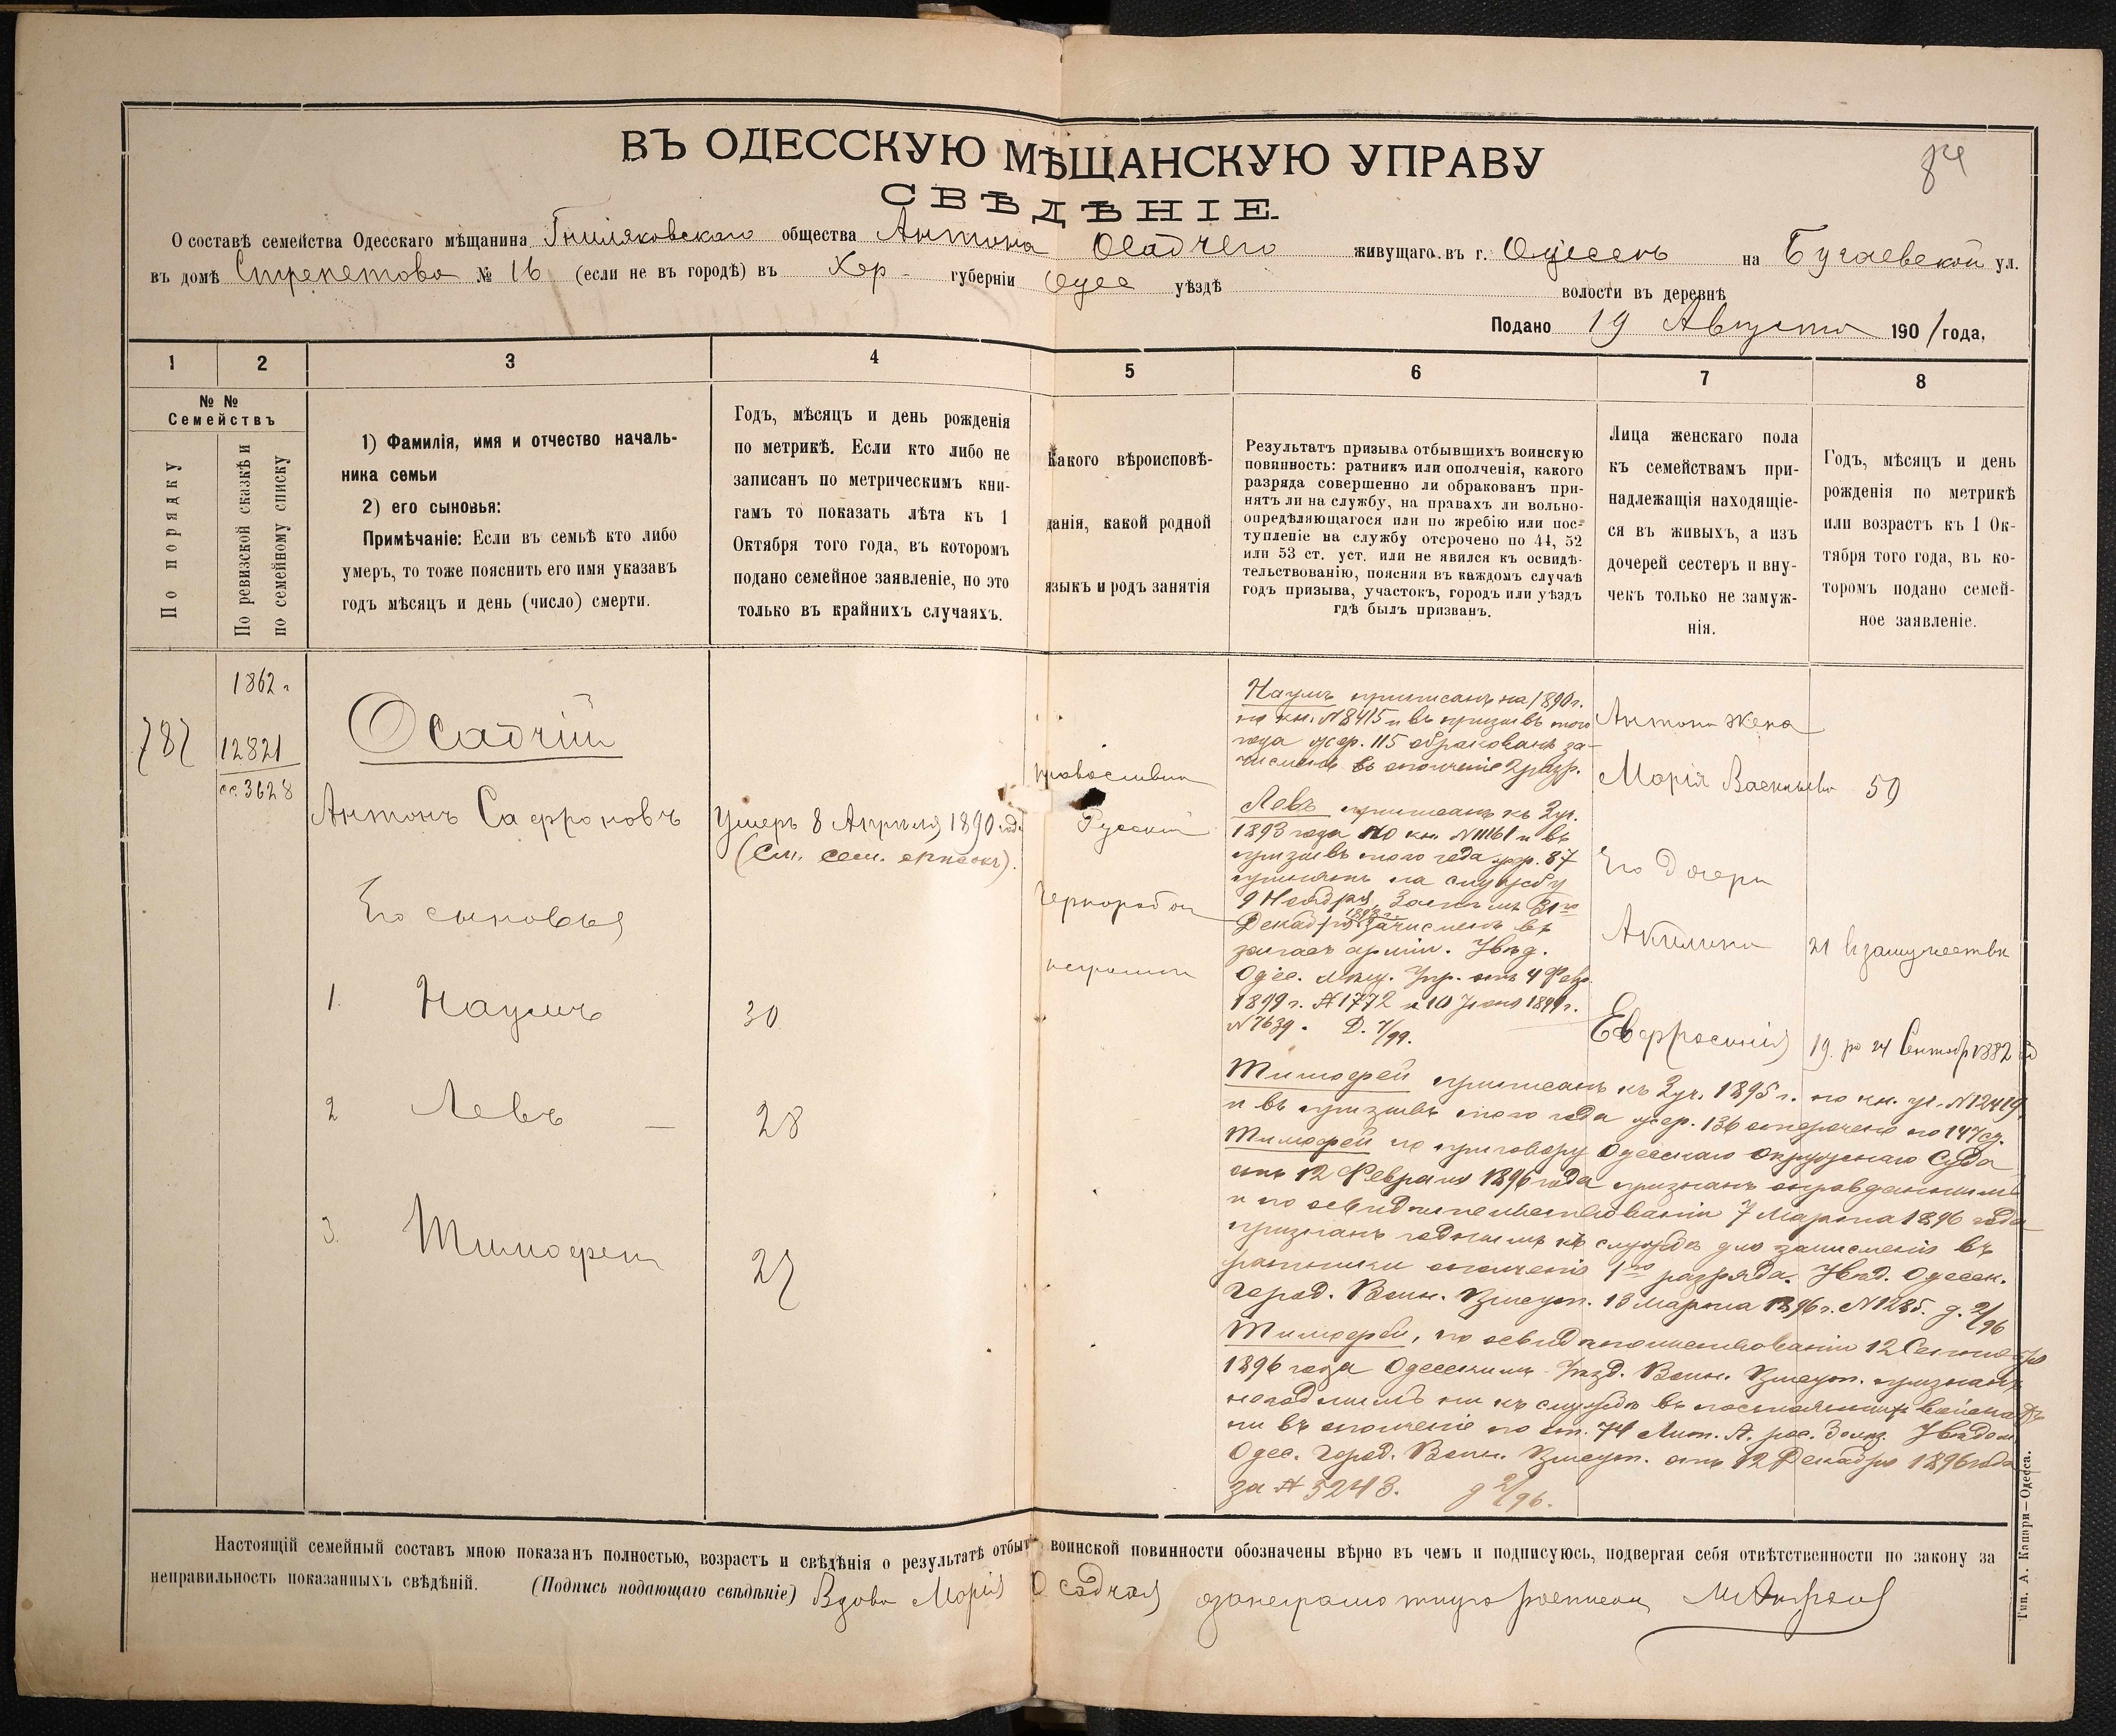 84
ВЪ ОДЕССКУЮ МѢЩАНСКУЮ УПРАВУ
СВѢДѢНІЕ.
О составѣ семейства Одесскаго мѣщанина Гниляковскаго общества Антона Осадчего живущаго въ г. Одессѣ на Бугаевской ул.
въ домѣ Стрепетова № 16 (если не въ городѣ) въ Хер- губерніи Одес уѣздѣ волости въ деревнѣ
Подано 19 Августа 1901 года,
1 2 3 4 5 6 7 8
№ №
Семействъ
По порядку
По ревизской сказкѣ и
по семейному списку
1) Фамилія, имя и отчество началь-
ника семьи
2) его сыновья:
Примѣчаніе: Если въ семьѣ кто либо
умеръ, то тоже пояснить его имя указавъ
годъ мѣсяцъ и день (число) смерти.
Годъ, мѣсяцъ и день рожденія
по метрикѣ. Если кто либо не
записанъ по метрическимъ кни-
гамъ то показать лѣта къ 1
Октября того года, въ которомъ
подано семейное заявленіе, но это
только въ крайнихъ случаяхъ.
Какого вѣроисповѣ-
данія, какой родной
языкъ и родъ занятія
Результатъ призыва отбывшихъ воинскую
повинность: ратникъ или ополченія, какого
разряда совершенно ли обракованъ при-
нятъ ли на службу, на правахъ ли вольно-
опредѣляющагося или по жребію или пос-
тупленіе на службу отсрочено по 44, 52
или 53 ст. уст. или не явился къ освидѣ-
тельствованію, поясняя въ каждомъ случаѣ
годъ призыва, участокъ, городъ или уѣздъ
гдѣ былъ призванъ.
Лица женскаго пола
къ семействамъ при-
надлежащія находящіе-
ся въ живыхъ, а изъ
дочерей сестеръ и вну-
чекъ только не замуж-
нія.
Годъ, мѣсяцъ и день
рожденія по метрикѣ
или возрастъ къ 1 Ок-
тября того года, въ ко-
торомъ подано семей-
ное заявленіе.
787
1862 г
12821
сс. 3628
Осадчій
Антонъ Сафроновъ
Умеръ 8 Апрѣля 1890 год.
(См. сем. списокъ).
Его сыновья
1. Наумъ 30
2 Левъ — 28
3. Тимофей 27
православн
Русскій
Чернорабоч
неграмот
Наумъ приписанъ на 1890 г.
по кн. № 8415 и въ призывъ того
года жер. 115 обракованъ за-
численъ въ ополченіе 2 разр.
Левъ приписанъ къ 2 уч.
1893 года по кн. № 11161 и въ
призывъ того года жер. 87
принятъ на службу
9 Ноября, Затѣмъ 31го
Декабря зачисленъ въ
запасъ арміи. Увѣд.
Одес. мѣщ. Упр. отъ 4 Февр.
1899 г. № 1772 и 10 Іюня 1899 г.
№ 7639. Д. 7/99.
Тимофей приписанъ къ 2 уч. 1895 г. по кн. уч. № 12419
и въ призывъ того года жер. 136 отсрочено по 147 ст.
Тимофей по приговору Одесскаго Окружнаго Суда
отъ 12 Февраля 1896 года признанъ оправданнымъ
и по освидѣтельствованіи 7 Марта 1896 года
признанъ годнымъ къ службѣ для зачисленія въ
ратники ополченія 1го разряда. Увѣд. Одесск.
Город. Воин. Присут. 13 Марта 1896 г. № 1285. д. 2/96
Тимофей, по освидѣтельствованіи 12 Сентября
1896 года Одесскимъ Уѣзд. Воин. Присут. признанъ
негоднымъ ни къ службѣ въ постоянныхъ войскахъ
ни въ ополченіе по ст. 74 Лит. А. рос. болѣз. Увѣдом
Одес. Город. Воин. Присут. отъ 12 Декабря 1896 года
за № 5243. д 2/96.
Антона жена
Марія Васильева 59
Его дочери
Акилина 21 в замужествѣ
Евфросинія 19. ро 24 Сентябр 1882
Настоящій семейный составъ мною показанъ полностью, возрастъ и свѣдѣнія о результатѣ отбыт воинской повинности обозначены вѣрно въ чемъ и подписуюсь, подвергая себя отвѣтственности по закону за
неправильность показанныхъ свѣдѣній. (Подпись подающаго свѣдѣніе) Вдова Марія Осадчая а за неграмотную росписался
Тип. А. Капари—Одесса.